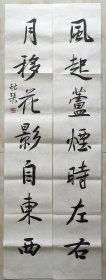 風起蘆煙時左右
月移花影自東西